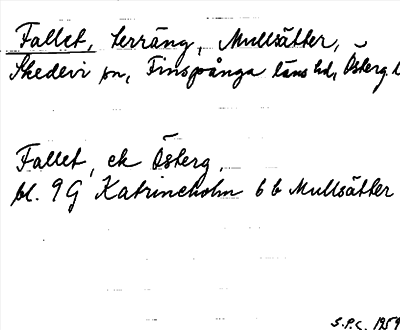 Fallet, terräng, Mullsätter,
Skedevi sn, Finspånga läns hd, Österg. l
Fallet, ek Österg.
bl. 9G Katrineholm 6b Mullsätter
S.P.C. 1959